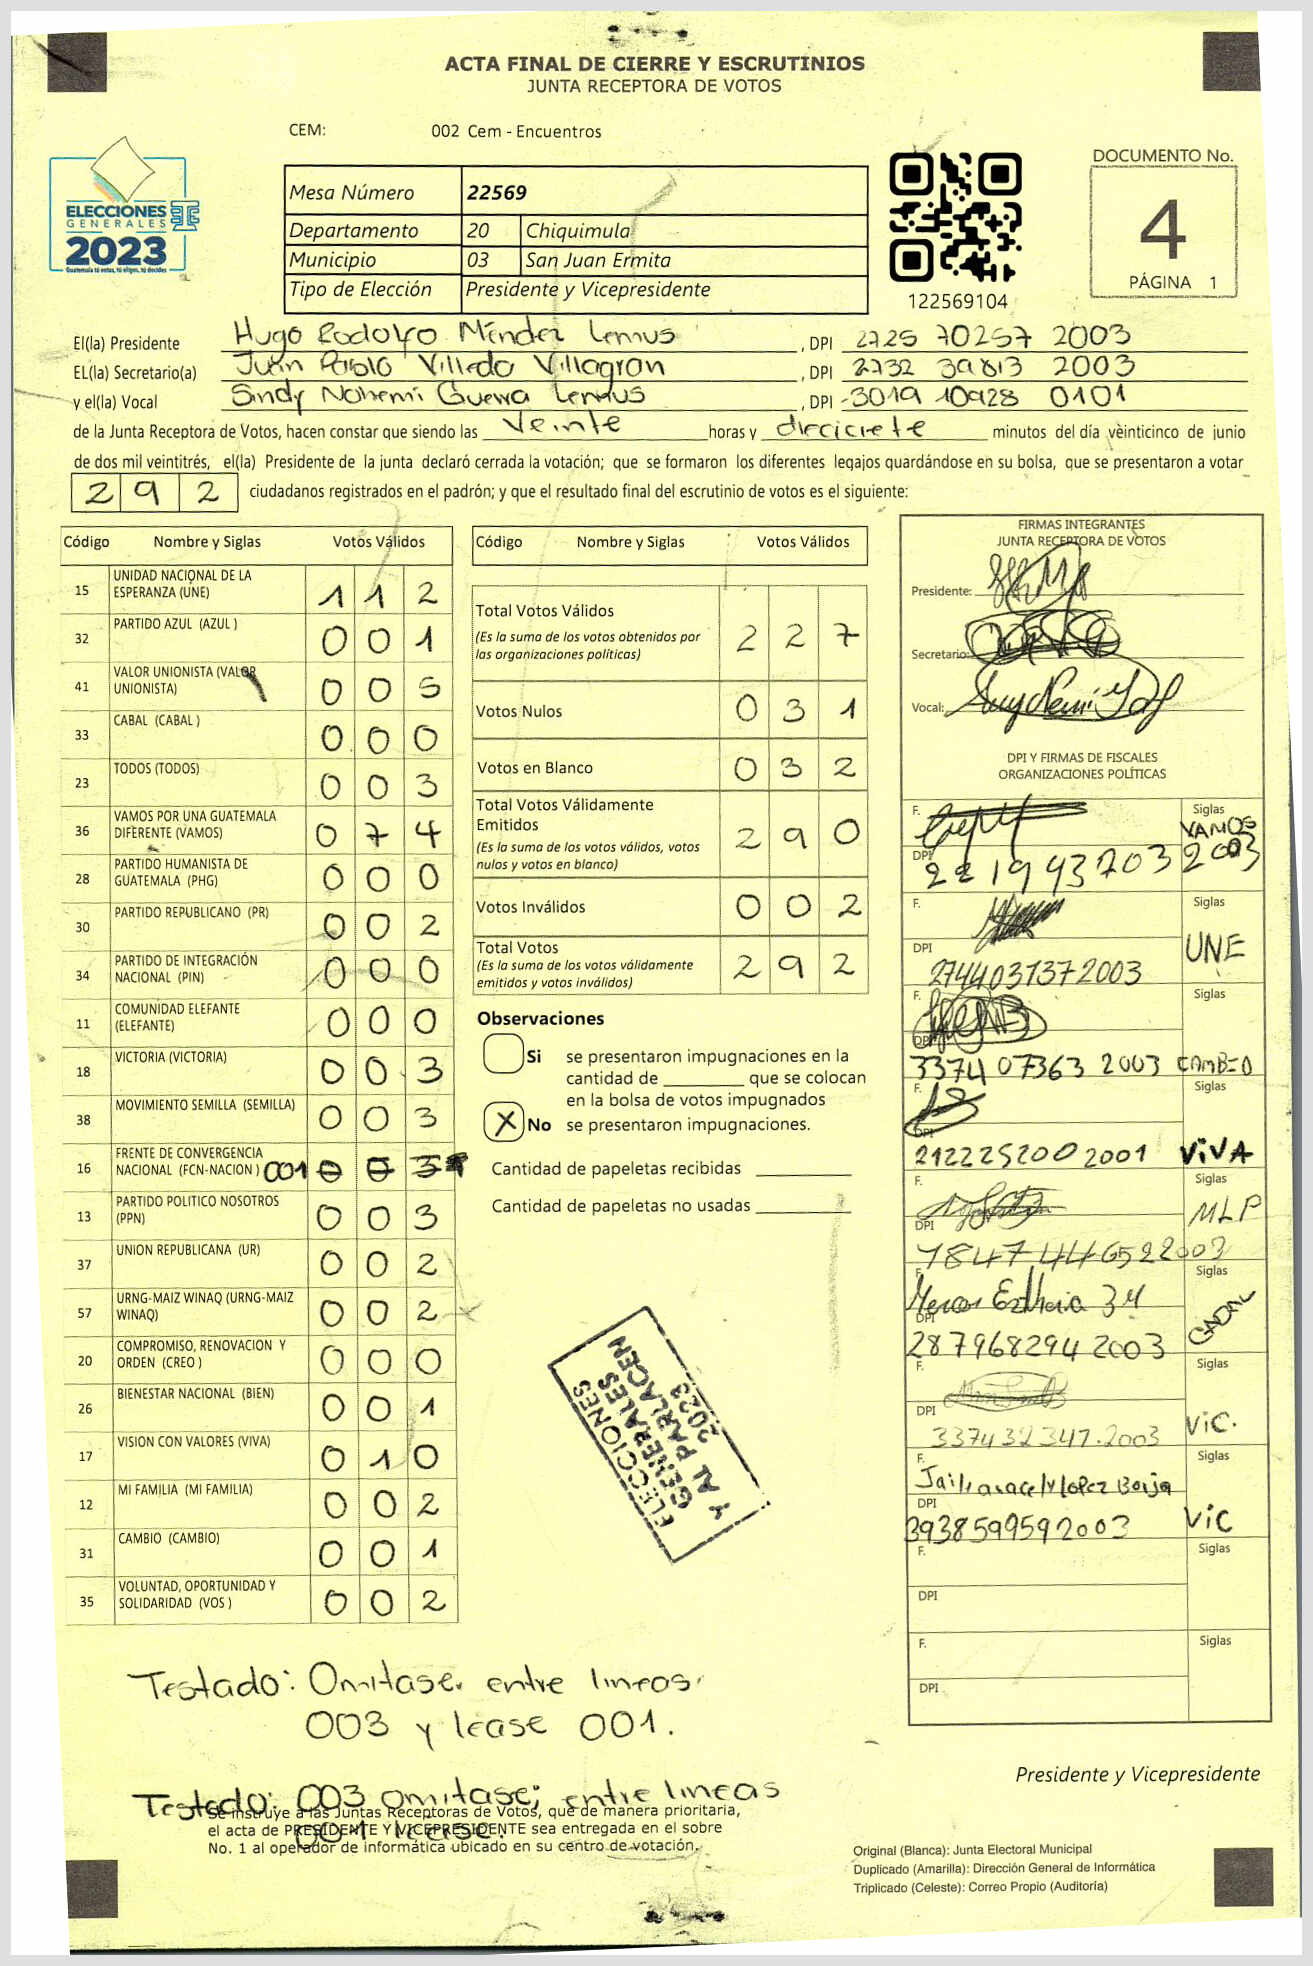 ACTA FINAL DE CIERRE Y ESCRUTINIOS
JUNTA RECEPTORA DE VOTOS
CEM: 002 Cem - Encuentros
ELECCIONES
GENERALES
2023
Guatemala tú votas, tú eliges, tú decides
Mesa Número 22569
Departamento 20 Chiquimula
Municipio 03 San Juan Ermita
Tipo de Elección Presidente y Vicepresidente
122569104
DOCUMENTO No.
4
PÁGINA 1
El(la) Presidente Hugo Rodolfo Méndez Lemus, DPI 2725 70257 2003
EL(la) Secretario(a) Juan Pablo Villeda Villagran, DPI 2732 39813 2003
y el(la) Vocal Sindy Nohemi Guerra Lemus, DPI 3019 10928 0101
de la Junta Receptora de Votos, hacen constar que siendo las veinte horas y dieciciete minutos del día veinticinco de junio
de dos mil veintitrés, el(la) Presidente de la junta declaró cerrada la votación; que se formaron los diferentes legajos guardándose en su bolsa, que se presentaron a votar
292 ciudadanos registrados en el padrón; y que el resultado final del escrutinio de votos es el siguiente:
Código Nombre y Siglas Votos Válidos
15 UNIDAD NACIONAL DE LA ESPERANZA (UNE) 112
32 PARTIDO AZUL (AZUL ) 001
41 VALOR UNIONISTA (VALOR UNIONISTA) 005
33 CABAL (CABAL ) 000
23 TODOS (TODOS) 003
36 VAMOS POR UNA GUATEMALA DIFERENTE (VAMOS) 074
28 PARTIDO HUMANISTA DE GUATEMALA (PHG) 000
30 PARTIDO REPUBLICANO (PR) 002
34 PARTIDO DE INTEGRACIÓN NACIONAL (PIN) 000
11 COMUNIDAD ELEFANTE (ELEFANTE) 000
18 VICTORIA (VICTORIA) 003
38 MOVIMIENTO SEMILLA (SEMILLA) 003
16 FRENTE DE CONVERGENCIA NACIONAL (FCN-NACION ) 001 003
13 PARTIDO POLITICO NOSOTROS (PPN) 003
37 UNION REPUBLICANA (UR) 002
57 URNG-MAIZ WINAQ (URNG-MAIZ WINAQ) 002
20 COMPROMISO, RENOVACION Y ORDEN (CREO ) 000
26 BIENESTAR NACIONAL (BIEN) 001
17 VISION CON VALORES (VIVA) 010
12 MI FAMILIA (MI FAMILIA) 002
31 CAMBIO (CAMBIO) 001
35 VOLUNTAD, OPORTUNIDAD Y SOLIDARIDAD (VOS ) 002
Código Nombre y Siglas Votos Válidos
Total Votos Válidos 227
(Es la suma de los votos obtenidos por
las organizaciones políticas)
Votos Nulos 031
Votos en Blanco 032
Total Votos Válidamente
Emitidos 290
(Es la suma de los votos válidos, votos
nulos y votos en blanco)
Votos Inválidos 002
Total Votos 292
(Es la suma de los votos válidamente
emitidos y votos inválidos)
Observaciones
Si se presentaron impugnaciones en la
cantidad de ________ que se colocan
en la bolsa de votos impugnados
X No se presentaron impugnaciones.
Cantidad de papeletas recibidas
Cantidad de papeletas no usadas
ELECCIONES
GENERALES
Y AL PARLACEN
2023
FIRMAS INTEGRANTES
JUNTA RECEPTORA DE VOTOS
Presidente:
Secretario:
Vocal:
DPI Y FIRMAS DE FISCALES
ORGANIZACIONES POLÍTICAS
F. Siglas VAMOS
DPI 2003
F. Siglas UNE
DPI 2744031372003
F. Siglas
DPI 3374 07363 2003 CAMBIO
F. Siglas
DPI 212225200 2001 ViVA
F. Siglas MLP
DPI
F. Siglas
DPI 2879682942003
F. Siglas
DPI 337432347.2003 VIC.
F. Siglas
DPI 3938599592003 VIC
F. Siglas
DPI
F. Siglas
DPI
Testado: Omitase. entre lineas.
003 y lease 001.
Testado: 003 omitase; entre lineas
001 lease.
Se instruye a las Juntas Receptoras de Votos, que de manera prioritaria,
el acta de PRESIDENTE Y VICEPRESIDENTE sea entregada en el sobre
No. 1 al operador de informática ubicado en su centro de votación.
Presidente y Vicepresidente
Original (Blanca): Junta Electoral Municipal
Duplicado (Amarilla): Dirección General de Informática
Triplicado (Celeste): Correo Propio (Auditoría)